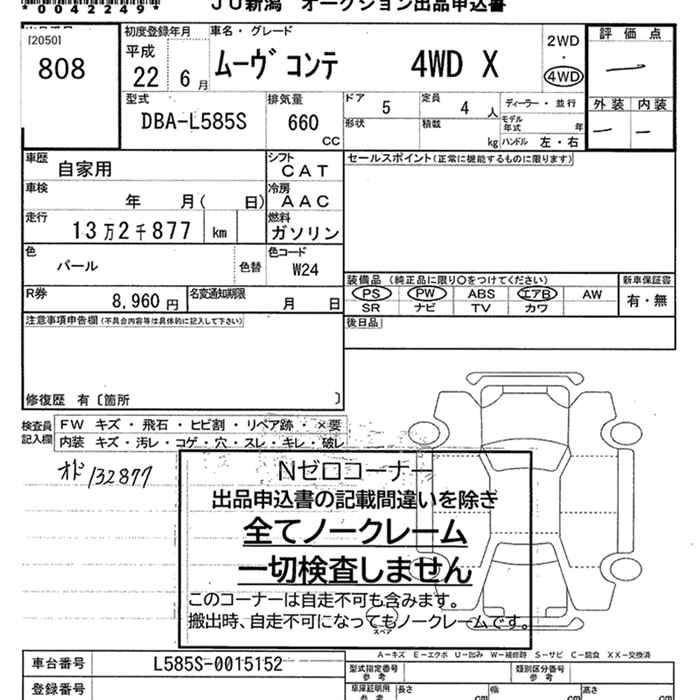 *0042249*
JU新潟 オークション出品申込書
[2050]
808
初度登録年月
平成
22 6 月
車名・グレード
ムーヴ コンテ 4WD X
2WD
・
4WD
評価点
外装 内装
型式
DBA-L585S
排気量
660
CC
ドア 5
定員 4 人
形状
積載 kg
ディーラー・並行
モデル年式 年
ハンドル 左・右
車歴
自家用
シフト
CAT
車検
年 月( 日)
冷房
AAC
走行
13万2千877 km
燃料
ガソリン
色
パール
色替
色コード
W24
R券
8,960 円
名変通知期限
月 日
セールスポイント(正常に機能するものに限ります)
装備品(純正品に限り○をつけてください)
PS PW ABS エアB AW
SR ナビ TV カワ
新車保証書
有・無
後日品
注意事項申告欄(不具合内容等は具体的に記入して下さい)
修復歴 有〔箇所 〕
検査員
記入欄
FW キズ・飛石・ヒビ割・リペア跡・×要
内装 キズ・汚レ・コゲ・穴・スレ・キレ・破レ
オド132877
Nゼロコーナー
出品申込書の記載間違いを除き
全てノークレーム
一切検査しません
このコーナーは自走不可も含みます。
搬出時、自走不可になってもノークレームです。
スペア
A-キズ E-エクボ U-凹み W-補修跡 S-サビ C-腐食 XX-交換済
車台番号
L585S-0015152
型式指定番号
参考
類別区分番号
参考
登録番号
車庫証明用
参考
長さ cm
幅 cm
高さ cm